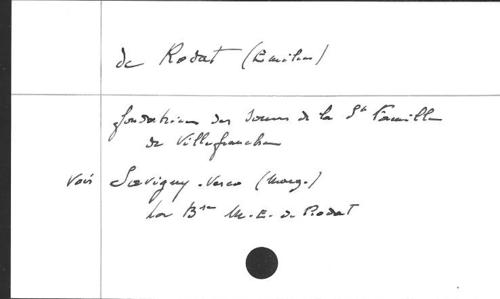 de Rodat (Emilie)
fondatrice des Soeurs de la Ste Famille
de Villefranche
Voir Savigny-Vesco (Marg.)
La Bse M.-E. de Rodat